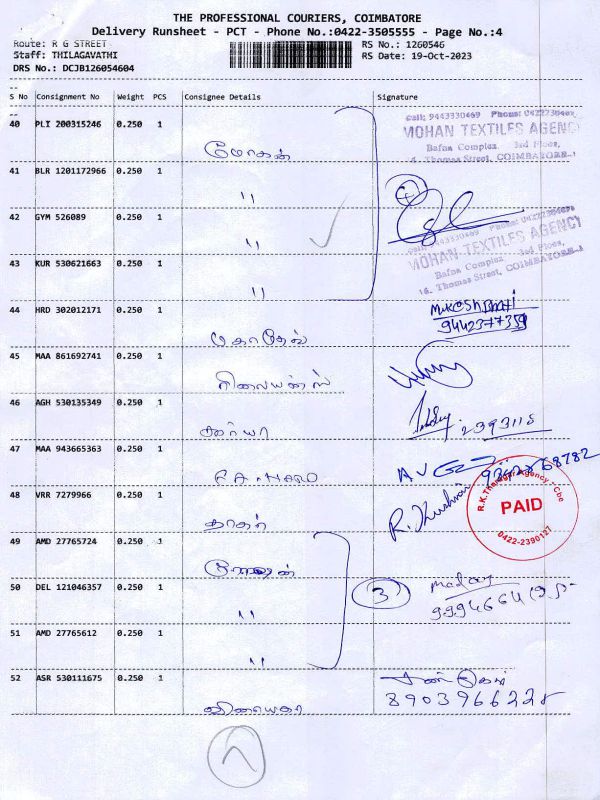 THE PROFESSIONAL COURIERS, COIMBATORE
Delivery Runsheet - PCT - Phone No.:0422-3505555 - Page No.:4
Route: R G STREET RS No.: 1260546
Staff: THILAGAVATHI RS Date: 19-Oct-2023
DRS No.: DCJB126054604
--
S No Consignment No Weight PCS Consignee Details Signature
--
40 PLI 200315246 0.250 1 மோகன்
Cell: 9443330469 Phone:
MOHAN TEXTILES AGENCY
Bafna Complex, 3rd Floor,
Thomas Street, COIMBATORE-1
41 BLR 1201172966 0.250 1 "
4
42 GYM 526089 0.250 1 "
Cell: 9443330469 Phone:
MOHAN TEXTILES AGENCY
Bafna Complex, 3rd Floor,
Thomas Street, COIMBATORE-1
43 KUR 530621663 0.250 1 "
44 HRD 302012171 0.250 1
9442377359
45 MAA 861692741 0.250 1
46 AGH 530135349 0.250 1 2393115
47 MAA 943665363 0.250 1
48 VRR 7279966 0.250 1
R.K. Agency Cbe
PAID
0422-2390127
49 AMD 27765724 0.250 1
50 DEL 121046357 0.250 1 " 3
51 AMD 27765612 0.250 1 "
52 ASR 530111675 0.250 1
8903966228